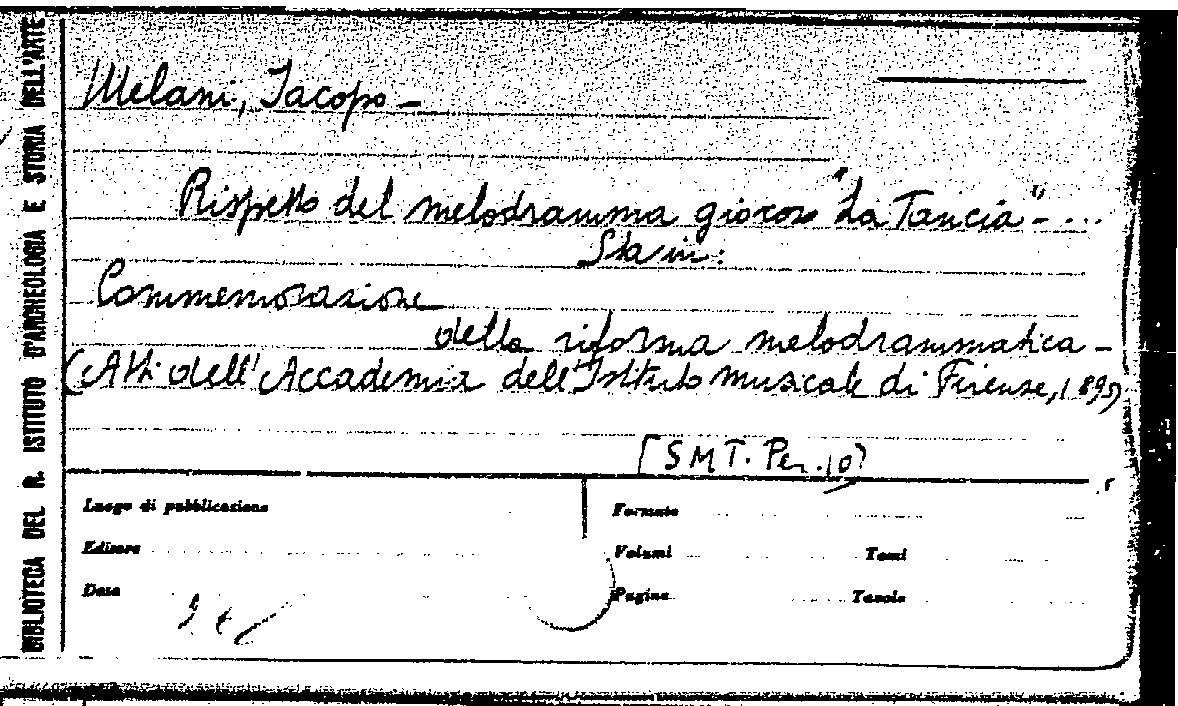 BIBLIOTECA DEL R. ISTITUTO D'ARCHEOLOGIA E STORIA DELL'ARTE
Melani, Jacopo -
Rispetto del melodramma giocoso "La Tancia" - ...
Sta in:
Commemorazione
della riforma melodrammatica -
(Atti dell'Accademia dell'Istituto musicale di Firenze, 1895)
[SMT. Per. 10]
Luogo di pubblicazione
Formato
Editore
Volumi
Tomi
Data
Pagine
Tavole